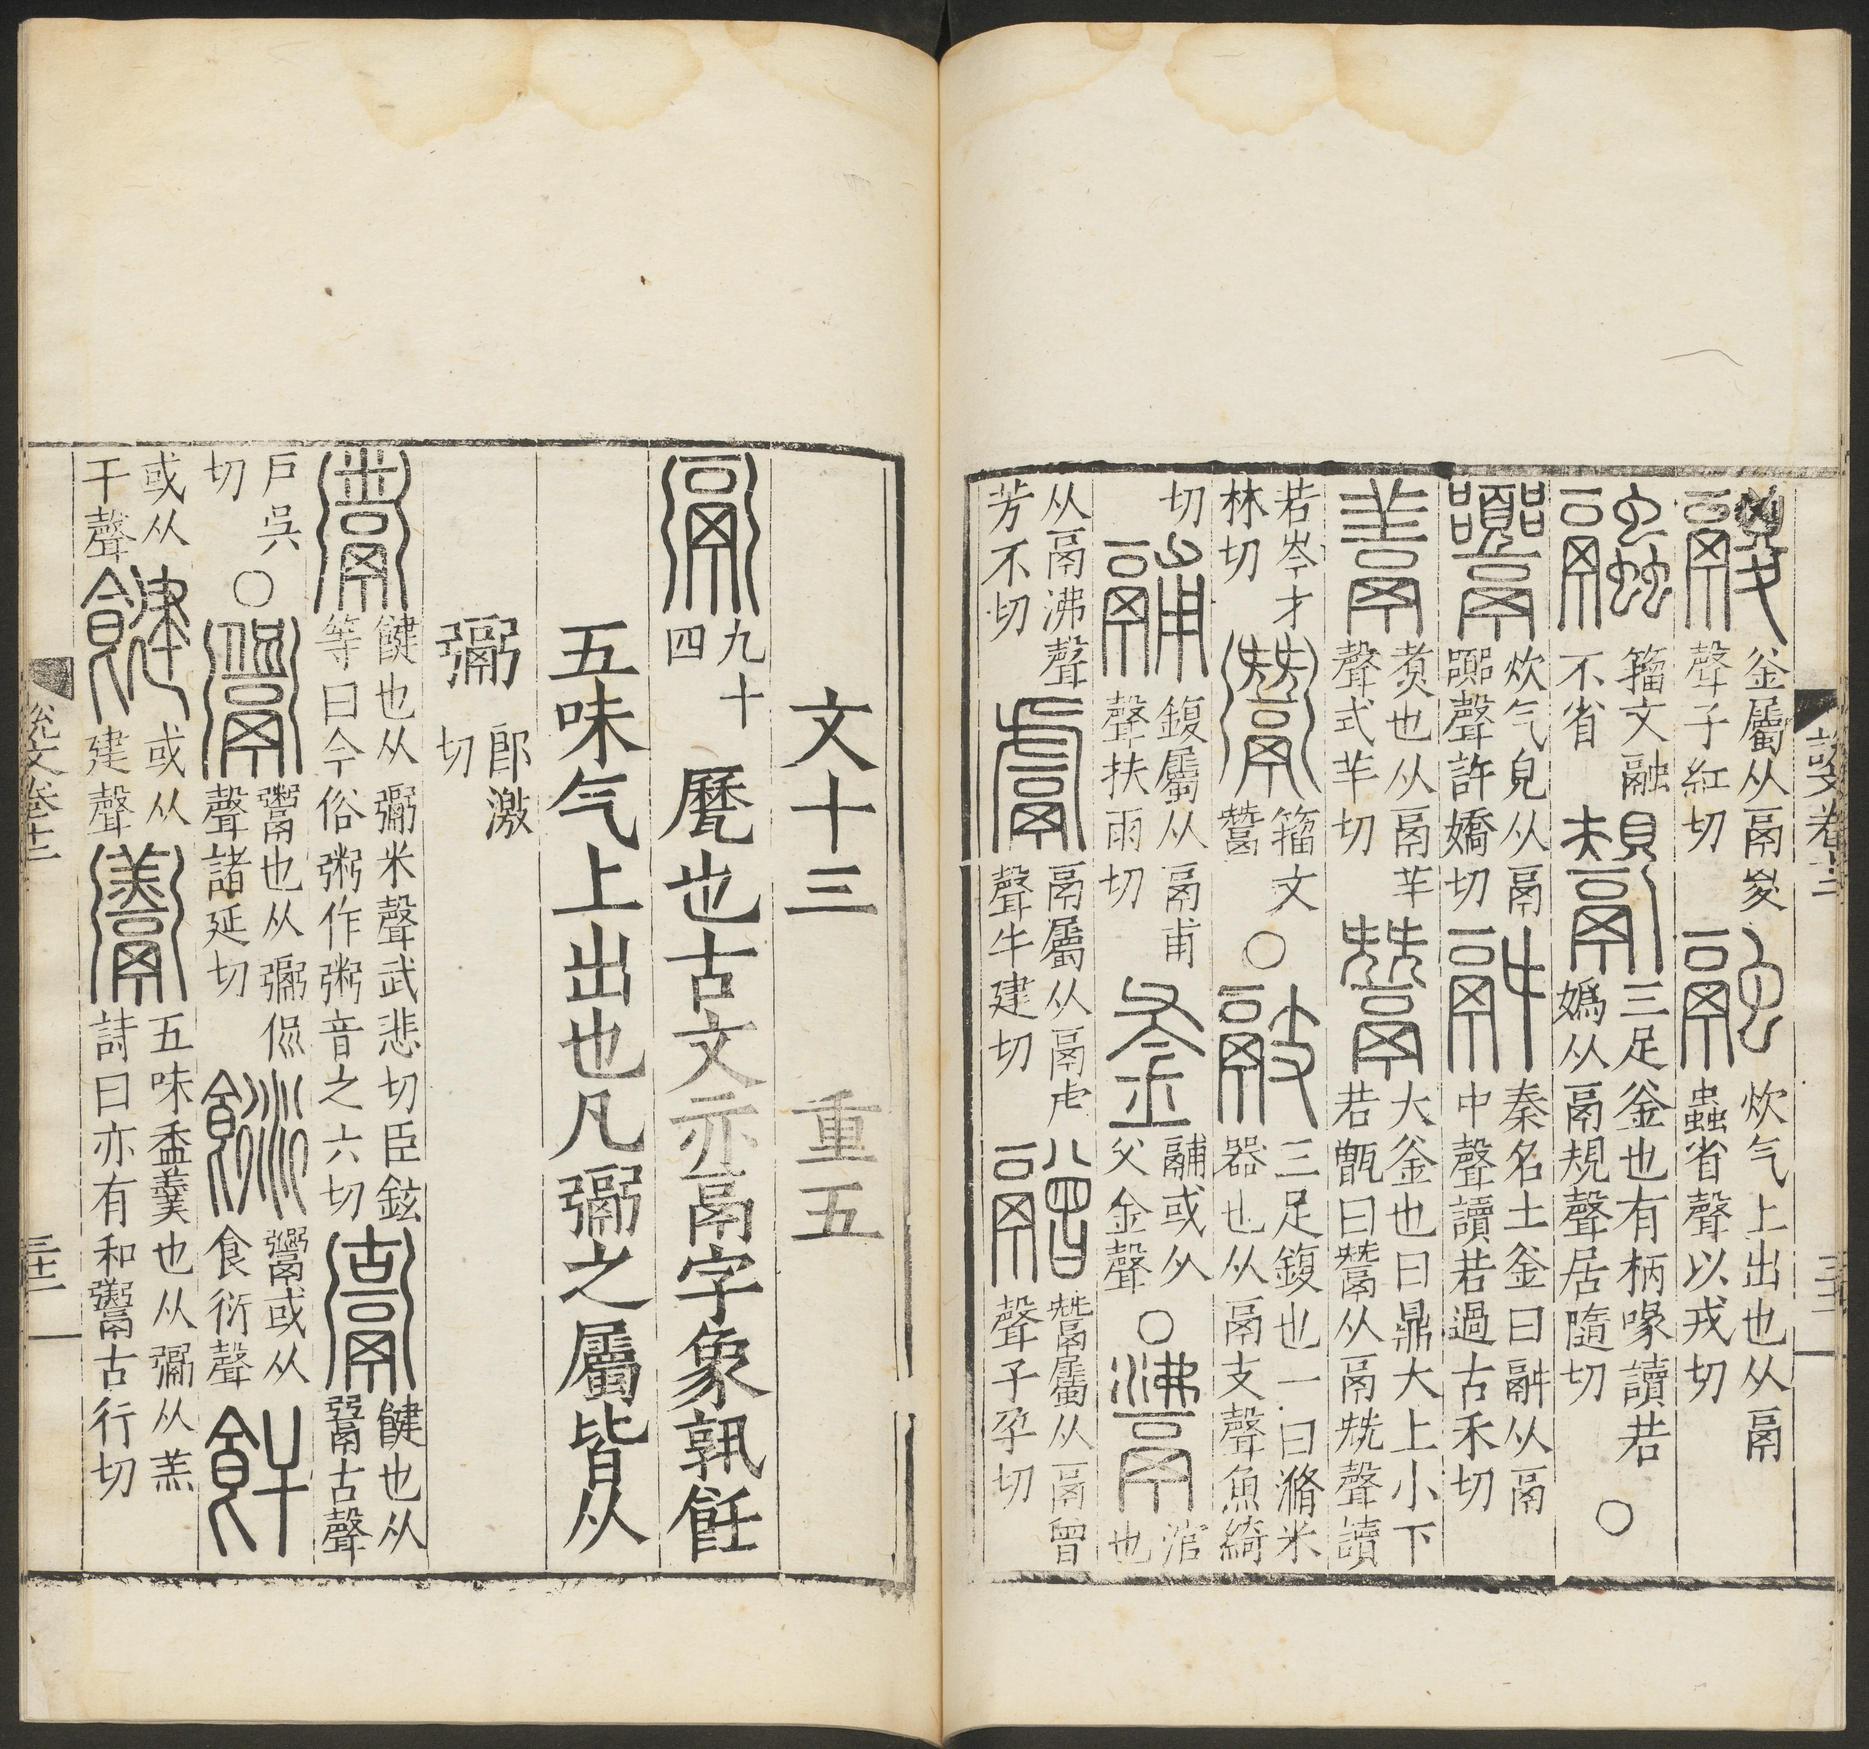 說文卷十二 三十二
鬷 釜屬从鬲㚇聲子紅切 融 炊气上出也从鬲蟲省聲以戎切
籒文融不省 鬹 三足釜也有柄喙讀若嬀从鬲規聲居隨切 ○
炊气皃从鬲嚻聲許嬌切 秦名土釜曰䰙从鬲中聲讀若過古禾切
䰞 煑也从鬲羊聲式羊切 鬵 大釜也曰鼎大上小下若甑曰鬵从鬲兓聲讀
若岑才林切 籒文鬵 ○ 三足鍑也一曰滫米器也从鬲支聲魚綺
切 鬴 鍑屬从鬲甫聲扶雨切 釜 鬴或从父金聲 ○ 涫也
从鬲沸聲芳不切 鬳 鬲屬从鬲虍聲牛建切 鬵屬从鬲曾聲子孕切
文十三 重五
𩰲 九十四 歷也古文亦鬲字象孰飪
五味气上出也凡𩰲之屬皆从
𩰲 郎激切
鬻 䭈也从𩰲米聲武悲切臣鉉等曰今俗粥作粥音之六切 䭈也从𩰲古聲
戶吳切 ○ 鬻也从𩰲侃聲諸延切 鬻或从食衍聲
或从干聲 或从建聲 五味盉羹也从𩰲从羔詩曰亦有和䰞古行切
說文卷十二 三十二